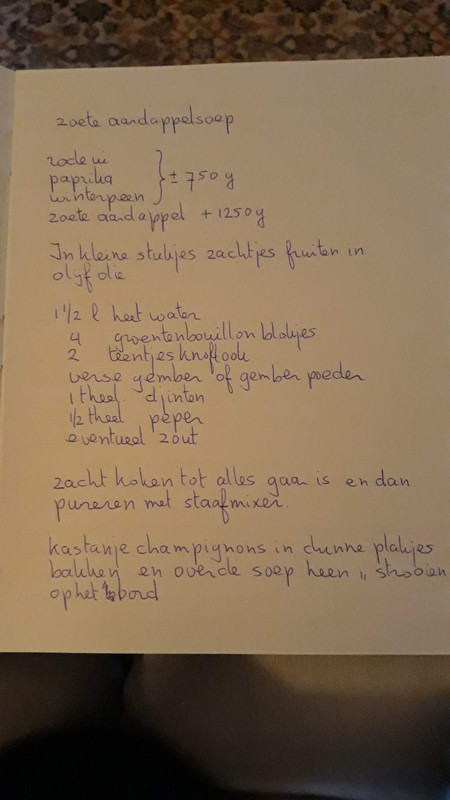 zoete aardappelsoep
rode ui
paprika
winterpeen
} ± 750 g
zoete aardappel + 1250 g
In kleine stukjes zachtjes fruiten in
olijfolie
1 1/2 l heet water
4 groentenbouillon blokjes
2 teentjes knoflook
verse gember of gember poeder
1 theel. djinten
1/2 theel peper
eventueel zout
zacht koken tot alles gaar is en dan
pureren met staafmixer.
kastanje champignons in dunne plakjes
bakken en over de soep heen " strooien
op het bord